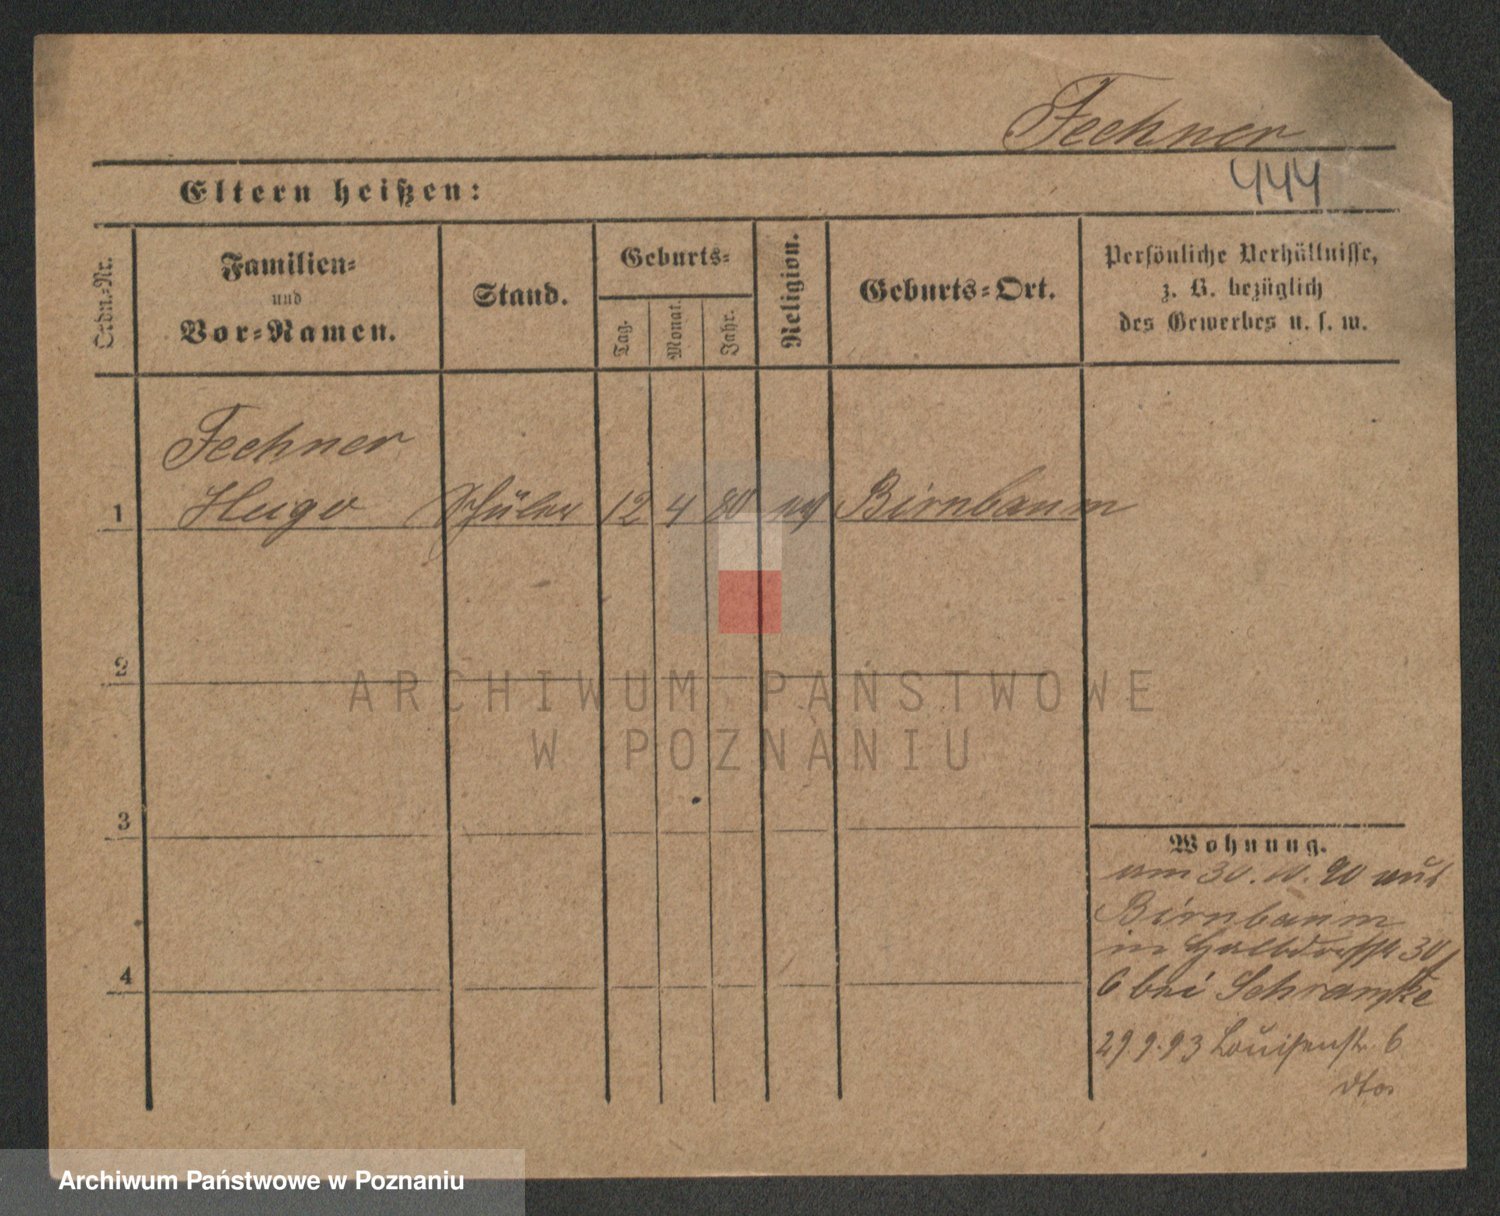 Fechner
444
Eltern heißen:
Ordn.-Nr.
Familien-
und
Vor-Namen.
Stand.
Geburts-
Tag.
Monat.
Jahr.
Religion.
Geburts-Ort.
Persönliche Verhältnisse,
z. B. bezüglich
des Gewerbes u. s. w.
Fechner
1 Hugo Schüler 12 4 80 ev Birnbaum
2
3
4
Wohnung.
am 30. 10. 90 aus
Birnbaum
in Halbdorfstr 30
6 bei Schramke
29.9.93 Louisenstr. 6
dto
ARCHIWUM PAŃSTWOWE
W POZNANIU
Archiwum Państwowe w Poznaniu